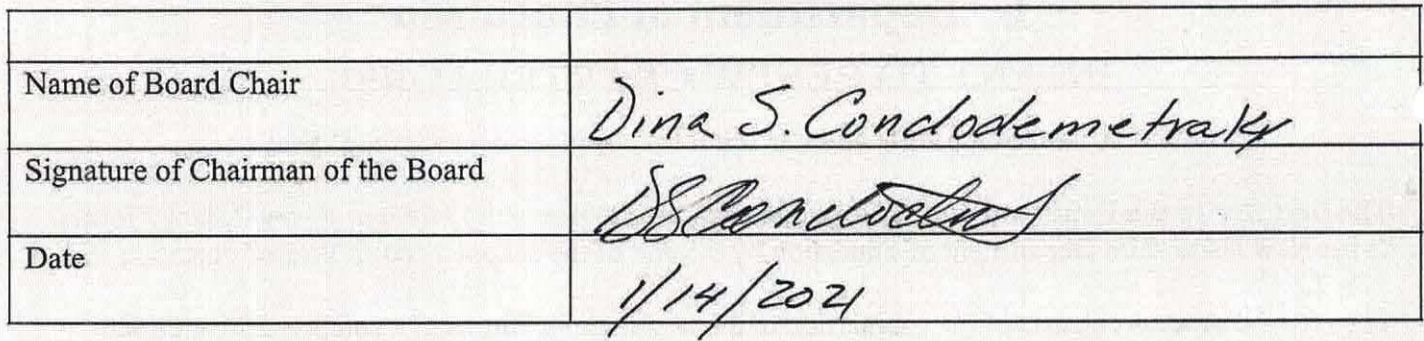 Name of Board Chair
Dina S. Condodemetraky
Signature of Chairman of the Board
Date
1/14/2021